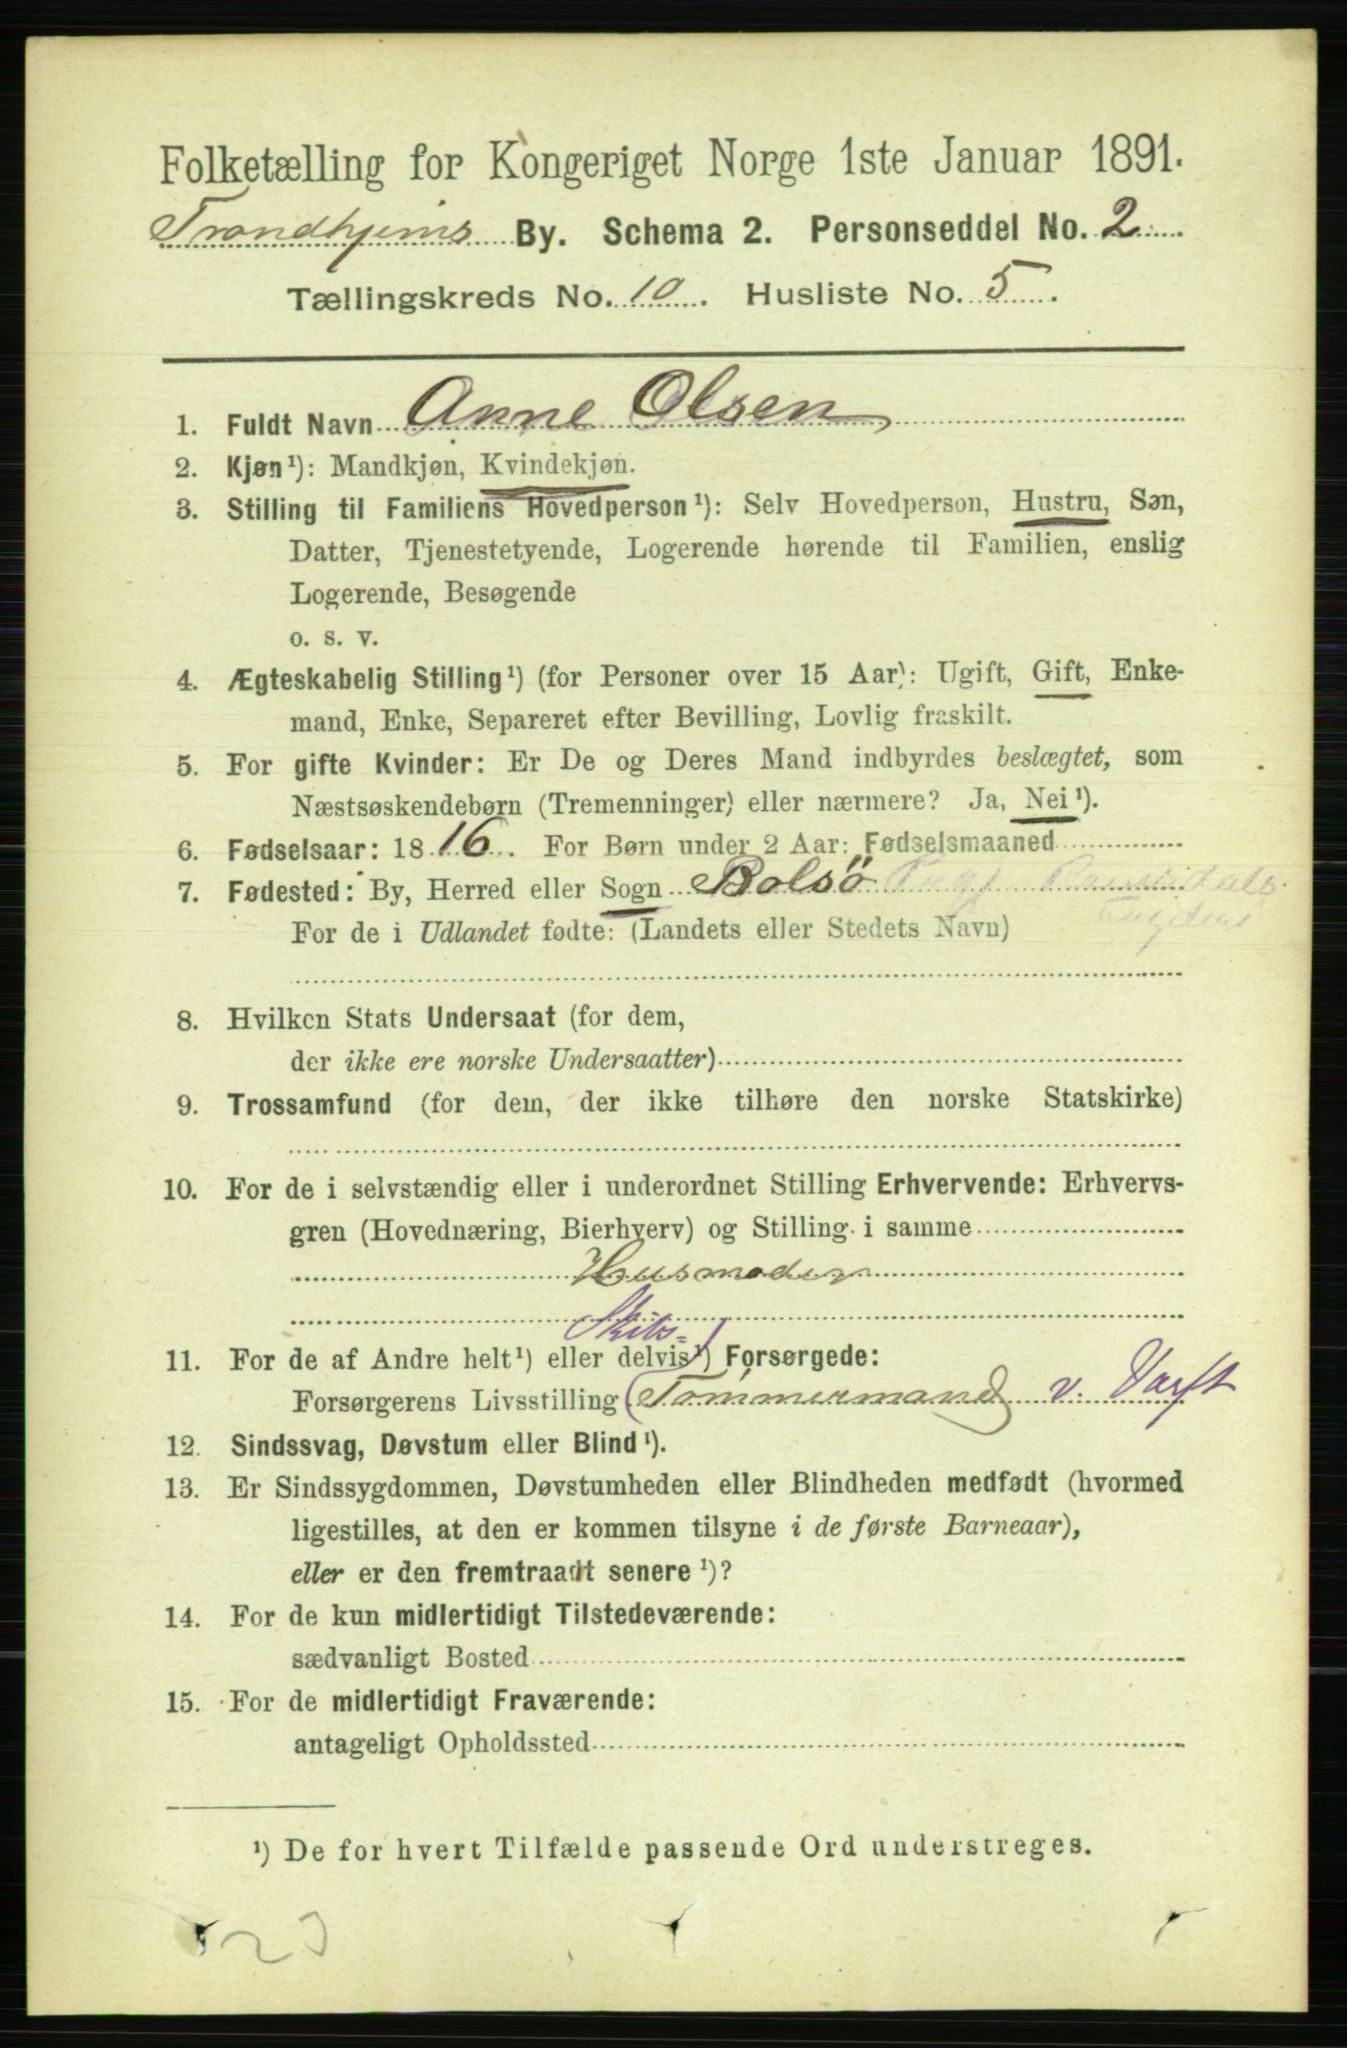 Folketælling for Kongeriget Norge 1ste Januar 1891.
Trondhjems By. Schema 2. Personseddel No. 2
Tællingskreds No. 10. Husliste No. 5.
1. Fuldt Navn Anne Olsen
2. Kjøn¹): Mandkjøn, Kvindekjøn.
3. Stilling til Familiens Hovedperson¹): Selv Hovedperson, Hustru, Søn,
Datter, Tjenestetyende, Logerende hørende til Familien, enslig
Logerende, Besøgende
o. s. v.
4. Ægteskabelig Stilling¹) (for Personer over 15 Aar): Ugift, Gift, Enke-
mand, Enke, Separeret efter Bevilling, Lovlig fraskilt.
5. For gifte Kvinder: Er De og Deres Mand indbyrdes beslægtet, som
Næstsøskendebørn (Tremenninger) eller nærmere? Ja, Nei¹).
6. Fødselsaar: 1816. For Børn under 2 Aar: Fødselsmaaned
7. Fødested: By, Herred eller Sogn Bolsö
For de i Udlandet fødte: (Landets eller Stedets Navn)
8. Hvilken Stats Undersaat (for dem,
der ikke ere norske Undersaatter)
9. Trossamfund (for dem, der ikke tilhøre den norske Statskirke)
10. For de i selvstændig eller i underordnet Stilling Erhvervende: Erhvervs-
gren (Hovednæring, Bierhverv) og Stilling i samme
Husmoder
Skibs-
11. For de af Andre helt¹) eller delvis¹) Forsørgede:
Forsørgerens Livsstilling (Tømmermand v. Varft
12. Sindssvag, Døvstum eller Blind¹).
13. Er Sindssygdommen, Døvstumheden eller Blindheden medfødt (hvormed
ligestilles, at den er kommen tilsyne i de første Barneaar),
eller er den fremtraadt senere¹)?
14. For de kun midlertidigt Tilstedeværende:
sædvanligt Bosted
15. For de midlertidigt Fraværende:
antageligt Opholdssted
¹) De for hvert Tilfælde passende Ord understreges.